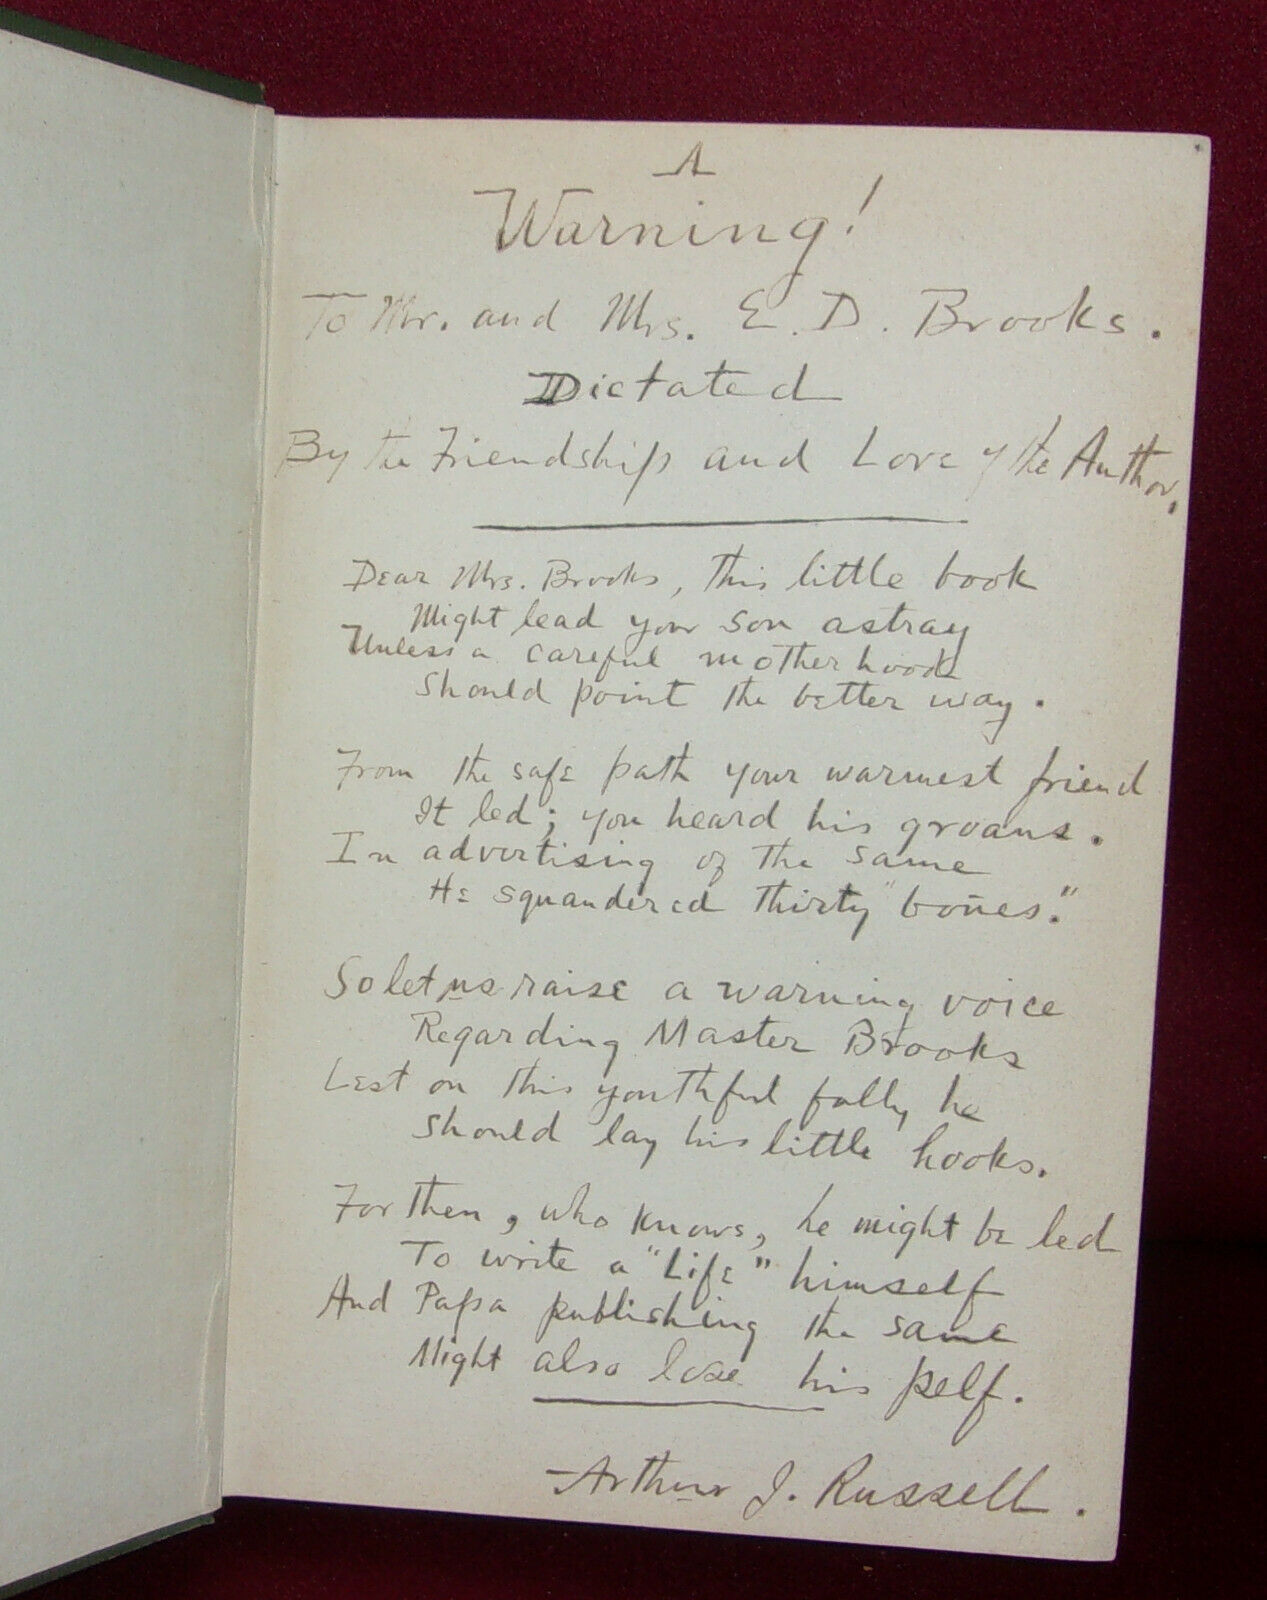 A
Warning!
To Mr. and Mrs. E. D. Brooks.
Dictated
By the Friendship and Love of the Author.
Dear Mrs. Brooks, this little book
Might lead your son astray
Unless a careful motherhood
Should point the better way.
From the safe path your warmest friend
It led; you heard his groans.
In advertising of the same
He squandered thirty "bones."
So let us raise a warning voice
Regarding Master Brooks
Lest on this youthful folly he
Should lay his little hooks.
For then, who knows, he might be led
To write a "Life" himself
And Papa publishing the same
Might also lose his pelf.
Arthur J. Russell.